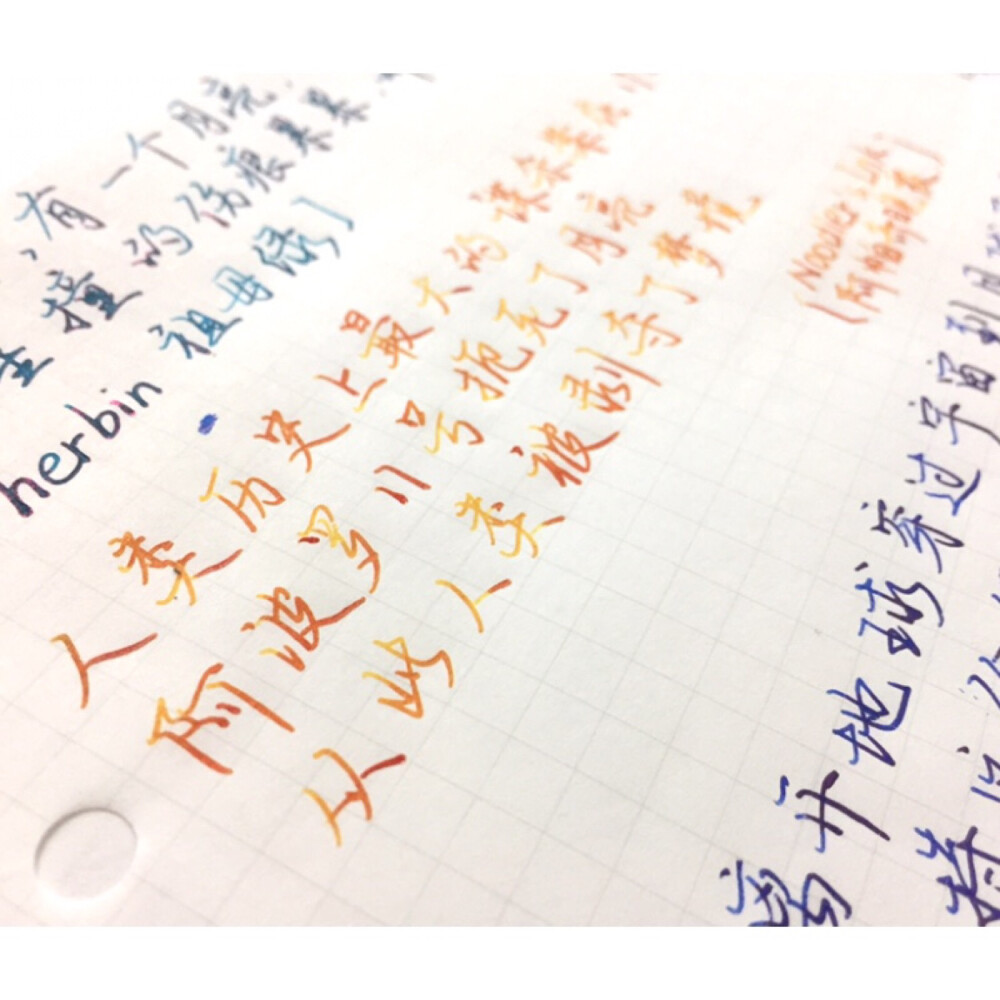 有一个月亮
撞的伤痕累累
herbin 祖母绿]
人类历史上最大的谋杀案
阿波罗11号扼死了月亮
以此人类被剥夺了梦境
[Noodler's Ink
(阿帕奇晚霞)]
离开地球穿过宇宙到月